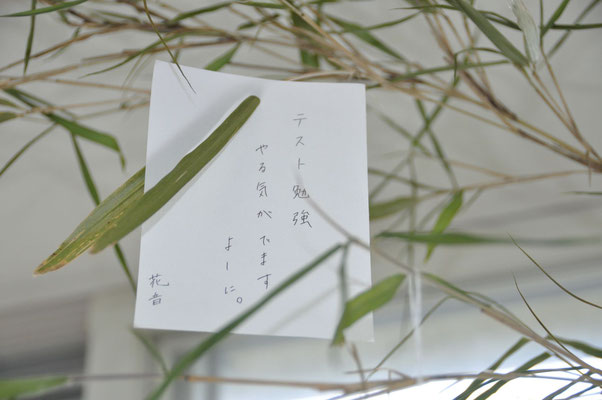 テスト勉強
やる気がだます
よーに。
花音